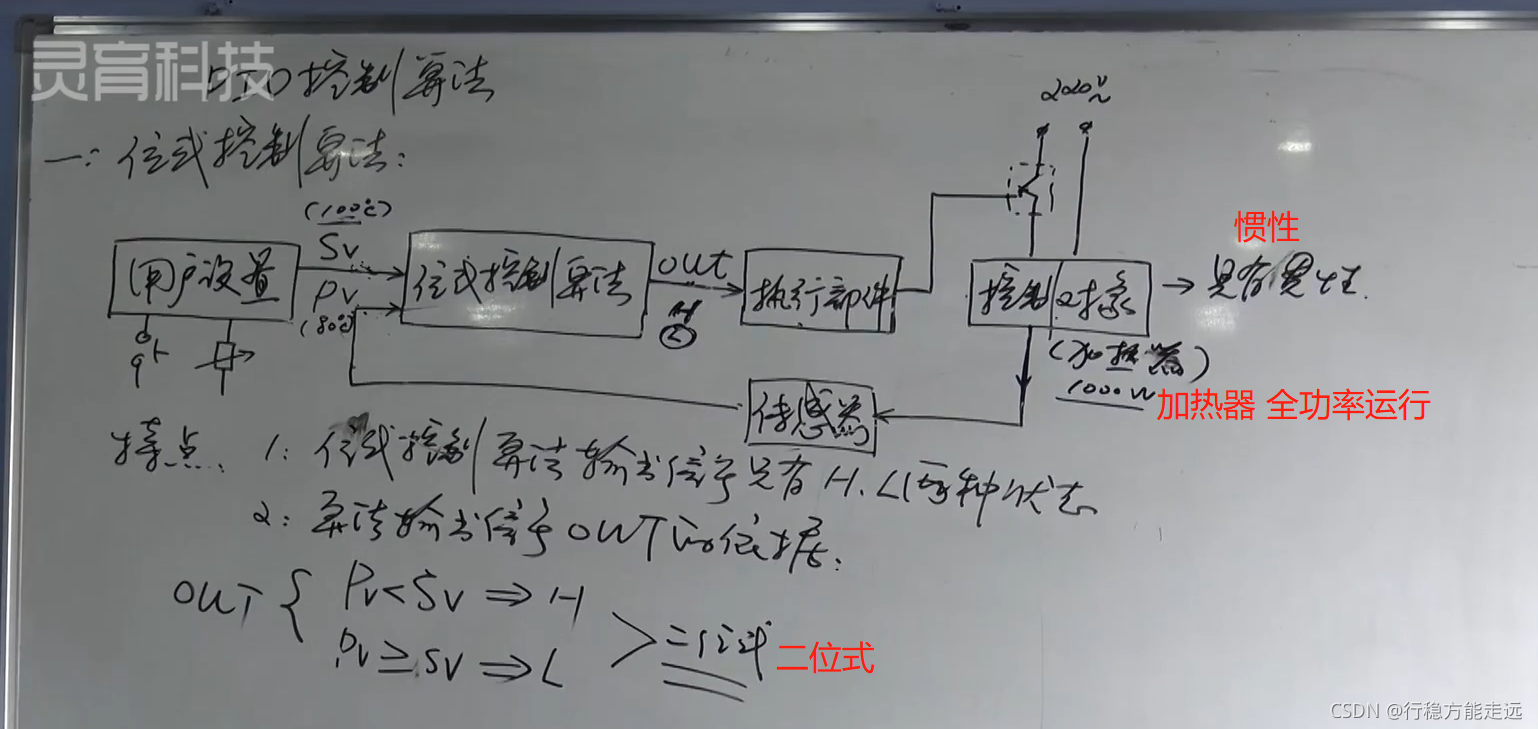 灵育科技
PID控制算法
一：位式控制算法：
220V~
(100℃)
SV
PV
(80℃)
用户设置
位式控制算法
OUT
执行部件
控制对象
→具有惯性.
惯性
(加热器)
1000W
加热器 全功率运行
传感器
特点、1：位式控制算法输出信号只有H.L两种状态
2：算法输出信号OUT的依据：
OUT { PV<SV ⇒ H
PV≥SV ⇒ L
> 二位式
二位式
CSDN @行稳方能走远